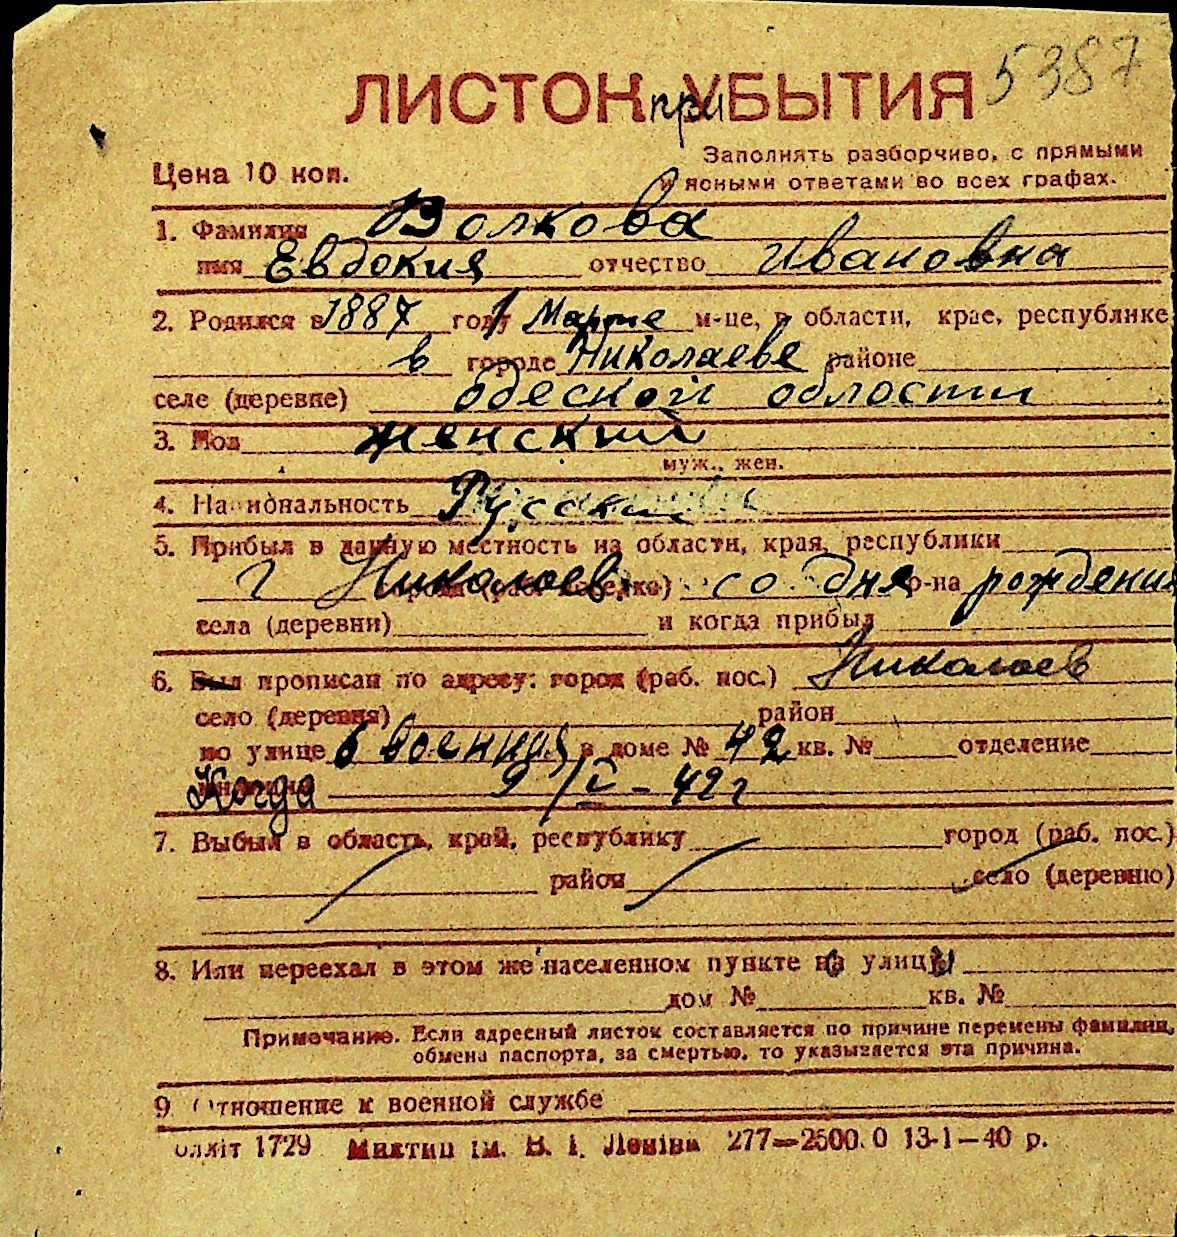 5387
ЛИСТОК при УБЫТИЯ
Цена 10 коп.
Заполнять разборчиво, с прямыми
и ясными ответами во всех графах.
1. Фамилия Волкова
имя Евдокия отчество Ивановна
2. Родился в 1887 году 1 Марте м-це, в области, крае, республике
в городе Николаеве районе
селе (деревне) одеской области
3. Пол женский
муж., жен.
4. Национальность Русский
5. Прибыл в данную местность из области, края, республики
г Николаев со дня р-на рождения
села (деревни) и когда прибыл
6. Был прописан по адресу: город (раб. пос.) Николаев
село (деревня) район
по улице 6 военная в доме № 42 кв. № отделение
Когда 9/V - 42 г
7. Выбыл в область, край, республику город (раб. пос.)
район село (деревню)
8. Или переехал в этом же населенном пункте на улицы
дом № кв. №
Примечание. Если адресный листок составляется по причине перемены фамилии,
обмена паспорта, за смертью, то указывается эта причина.
9 Отношение к военной службе
1729 Миктип ім. В. І. Леніна 277—2500.0 13-1—40 р.